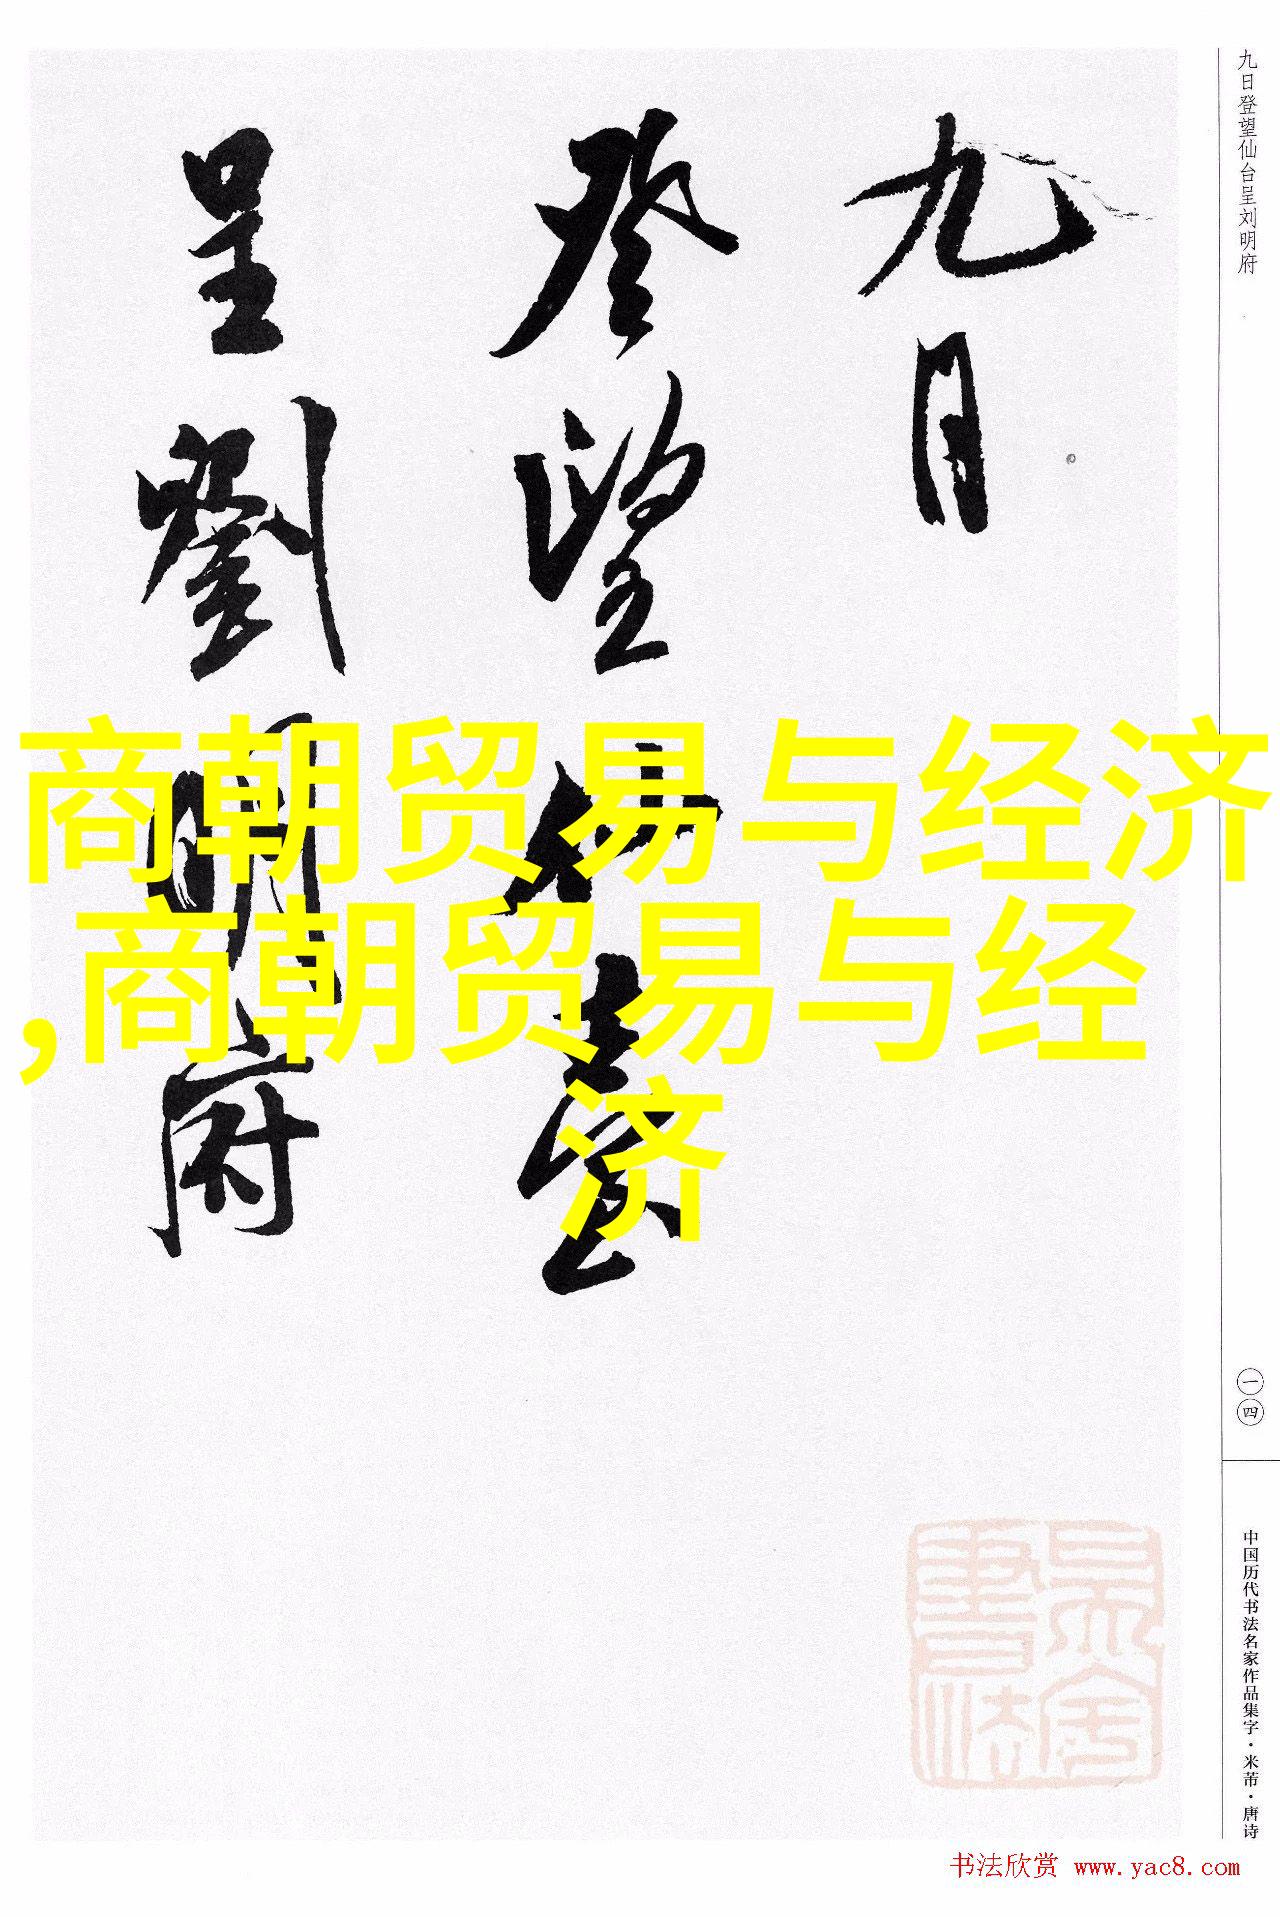 九日
登望仙臺
呈劉明府
商朝贸易与经济
,商朝贸易与经
济
九日登望仙台呈刘明府
一四
中国历代书法名家作品集字·米芾·唐诗
书法欣赏 www.yac8.com